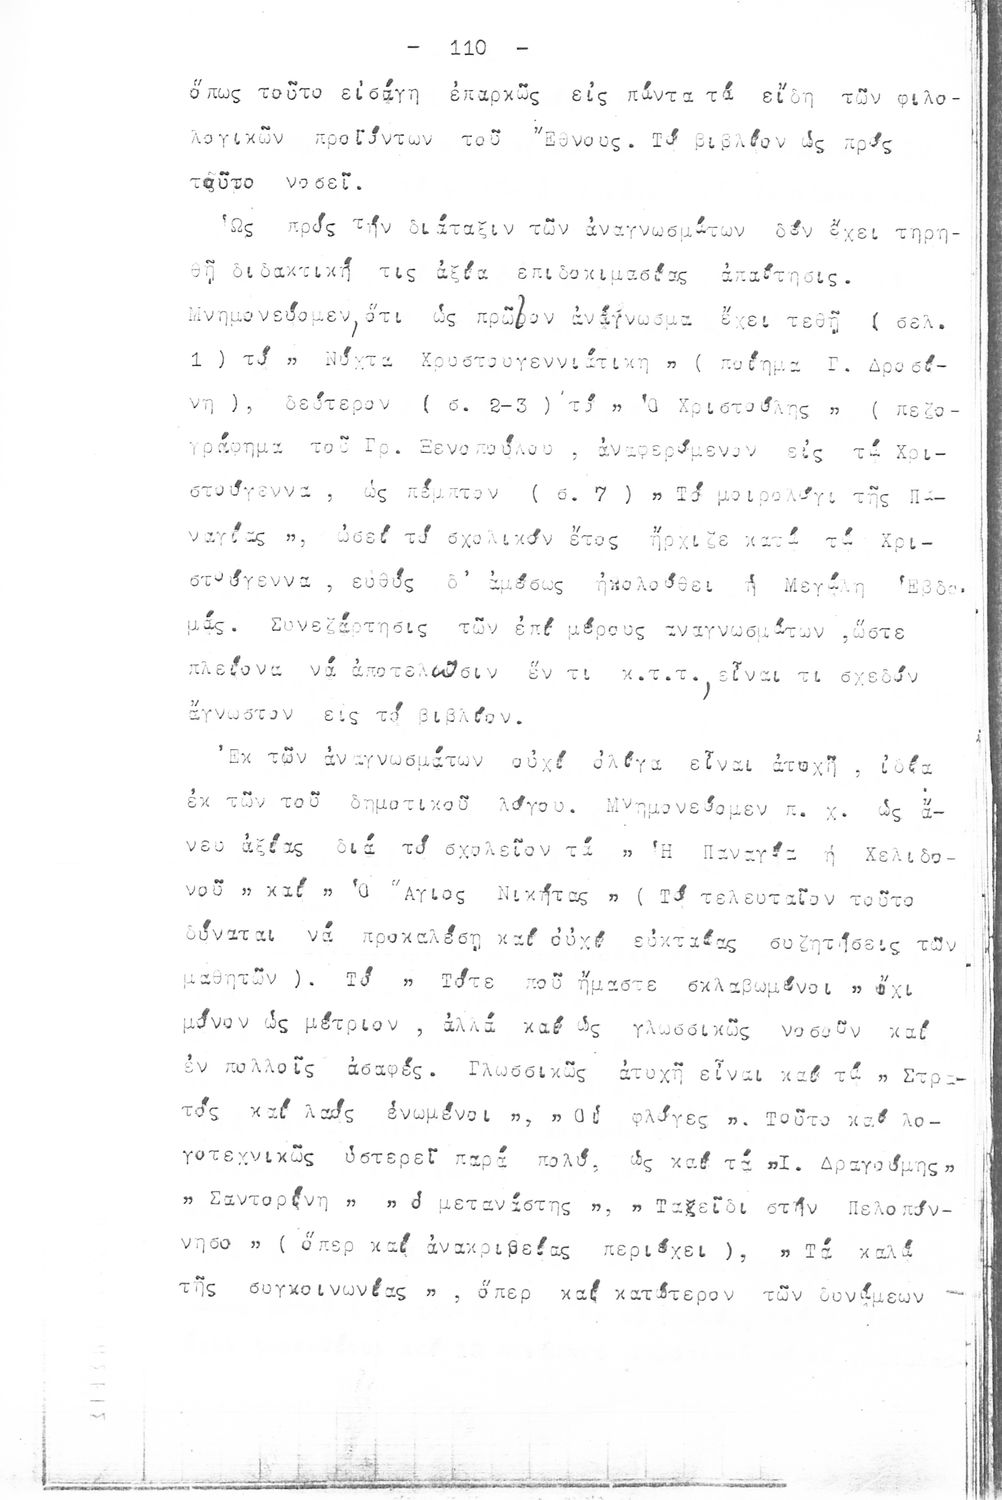 - 110 -
ὅπως τοῦτο εἰσάγη ἐπαρκῶς εἰς πάντα τά εἴδη τῶν φιλο-
λογικῶν προϊόντων τοῦ Ἔθνους. Τό βιβλίον ὡς πρός
ταῦτο νοσεῖ.
Ὡς πρός τήν διάταξιν τῶν ἀναγνωσμάτων δέν ἔχει τηρη-
θῆ διδακτική τις ἀξία επιδοκιμασίας ἀπαίτησις.
Μνημονεύομεν, ὅτι ὡς πρῶτον ἀνάγνωσμα ἔχει τεθῆ ( σελ.
1 ) τό " Νύχτα Χριστουγεννιάτικη " ( ποίημα Γ. Δροσί-
νη ), δεύτερον ( σ. 2-3 ) τό " Ὁ Χριστούλης " ( πεζο-
γράφημα τοῦ Γρ. Ξενοπούλου , ἀναφερόμενον εἰς τά Χρι-
στούγεννα , ὡς πέμπτον ( σ. 7 ) " Τό μοιρολόγι τῆς Πα-
ναγίας ", ὡσεί τό σχολικόν ἔτος ἤρχιζε κατά τά Χρι-
στούγεννα , εὐθύς δ' ἀμέσως ἠκολούθει ἡ Μεγάλη Ἑβδο-
μάς. Συνεξάρτησις τῶν ἐπί μέρους αναγνωσμάτων ,ὥστε
πλείονα νά ἀποτελῶσιν ἕν τι κ.τ.τ., εἶναι τι σχεδόν
ἄγνωστον εἰς τό βιβλίον.
Ἐκ τῶν ἀναγνωσμάτων οὐχί ὀλίγα εἶναι ἀτυχῆ , ἰδίᾳ
ἐκ τῶν τοῦ δημοτικοῦ λόγου. Μνημονεύομεν π. χ. ὡς ἄ-
νευ ἀξίας διά τό σχολεῖον τά " Ἡ Παναγία ἡ Χελιδο-
νοῦ " καί " Ὁ Ἅγιος Νικήτας " ( Τό τελευταῖον τοῦτο
δύναται νά προκαλέση καί οὐχί εὐκταίας συζητήσεις τῶν
μαθητῶν ). Τό " Τότε ποῦ ἤμαστε σκλαβωμένοι " ὄχι
μόνον ὡς μέτριον , ἀλλά καί ὡς γλωσσικῶς νοσοῦν καί
ἐν πολλοῖς ἀσαφές. Γλωσσικῶς ἀτυχῆ εἶναι καί τά " Στρα-
τός καί λαός ἑνωμένοι ", " Οἱ φλόγες ". Τοῦτο καί λο-
γοτεχνικῶς ὑστερεῖ παρά πολύ, ὡς καί τά "Ι. Δραγούμης"
" Σαντορίνη " " ὁ μετανάστης ", " Ταξεῖδι στήν Πελοπόν-
νησο " ( ὅπερ καί ἀνακριβείας περιέχει ), " Τά καλά
τῆς συγκοινωνίας " , ὅπερ καί κατώτερον τῶν δυνάμεων